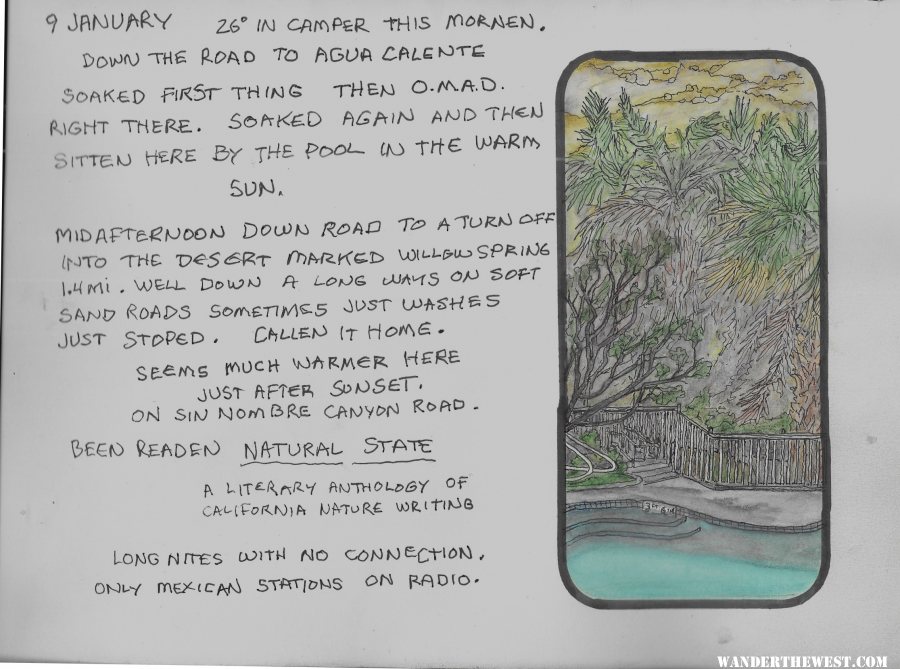 9 JANUARY 26° IN CAMPER THIS MORNEN.
DOWN THE ROAD TO AGUA CALENTE
SOAKED FIRST THING THEN O.M.A.D.
RIGHT THERE. SOAKED AGAIN AND THEN
SITTEN HERE BY THE POOL IN THE WARM
SUN.
MIDAFTERNOON DOWN ROAD TO A TURN OFF
INTO THE DESERT MARKED WILLOW SPRING
1.4 MI. WELL DOWN A LONG WAYS ON SOFT
SAND ROADS SOMETIMES JUST WASHES
JUST STOPED. CALLEN IT HOME.
SEEMS MUCH WARMER HERE
JUST AFTER SUNSET.
ON SIN NOMBRE CANYON ROAD.
BEEN READEN NATURAL STATE
A LITERARY ANTHOLOGY OF
CALIFORNIA NATURE WRITING
LONG NITES WITH NO CONNECTION.
ONLY MEXICAN STATIONS ON RADIO.
WANDERTHEWEST.COM